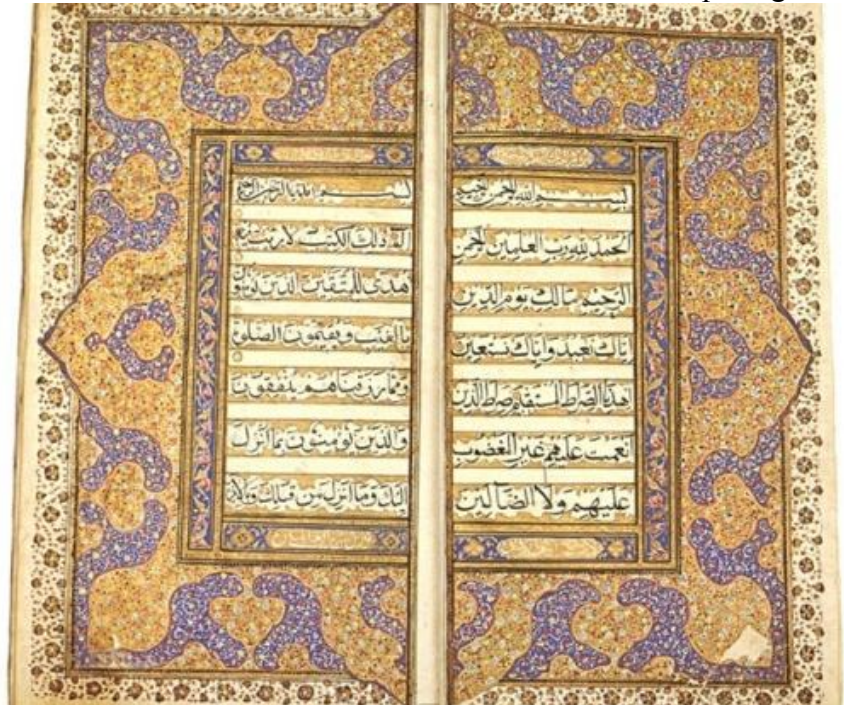 بسم الله الرحمن الرحيم
الحمد لله رب العالمين الرحمن
الرحيم مالك يوم الدين
اياك نعبد واياك نستعين
اهدنا الصراط المستقيم صراط الذين
انعمت عليهم غير المغضوب
عليهم ولا الضالين
بسم الله الرحمن الرحيم
الم ذلك الكتب لا ريب فيه
هدى للمتقين الذين يؤمنون
بالغيب ويقيمون الصلوة
ومما رزقناهم ينفقون
والذين يؤمنون بما انزل
اليك وما انزل من قبلك وبالا